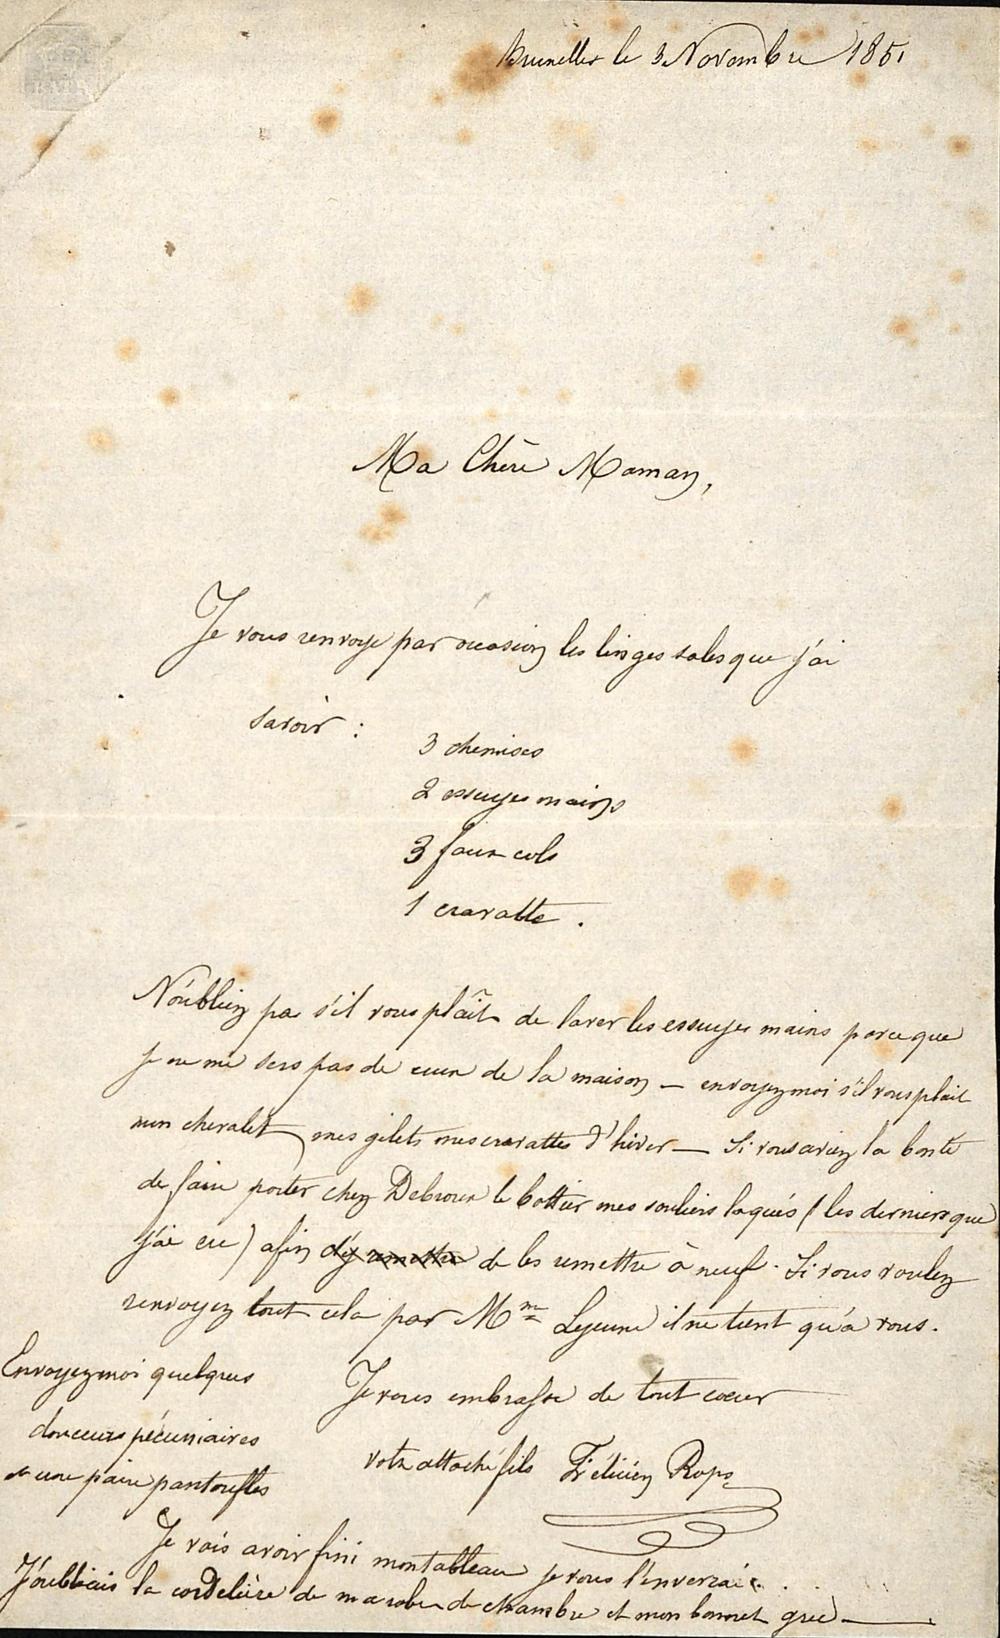 Bruxelles le 3 Novembre 1851
Ma Chère Maman,
Je vous renvoye par ocasion les linges sales que j'ai
savoir :
3 chemises
2 essuyes mains
3 faux cols
1 cravatte .
N'oubliez pas s'il vous plâit de laver les essuyes mains parceque
je ne me sers pas de ceux de la maison — envoyez moi s'il vous plait
mon chevalet mes gilets mes cravattes d'hiver — Si vous aviez la bonté
de faire porter chez Debroux le bottier mes souliers laqués (les derniers que
j'ai eu) afin d'y remettre de les remettre à neuf. Si vous voulez
renvoyez tout cela par Mme Lejeune il ne tient qu'à vous.
Je vous embrasse de tout coeur
votre attaché fils Félicien Rops
Envoyez moi quelques
douceurs pécuniaires
et une paire pantoufles
Je vais avoir fini mon tableau je vous l'enverrai .
J'oubliais la cordelière de ma robe de chambre et mon bonnet grec —